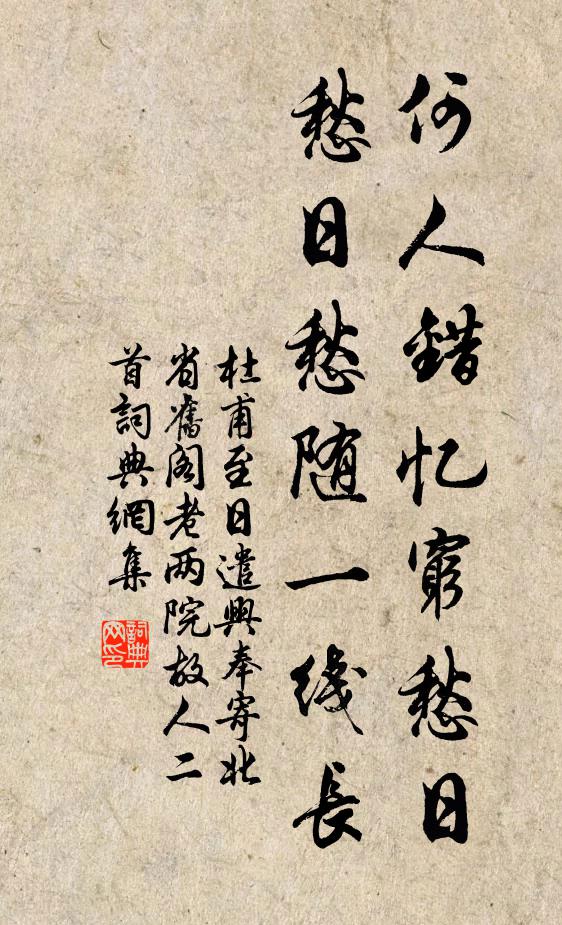 何人錯忆窮愁日
愁日愁随一线長
杜甫至日遣興奉寄北
省舊阁老两院故人二
首詞典網集
詞典
网印